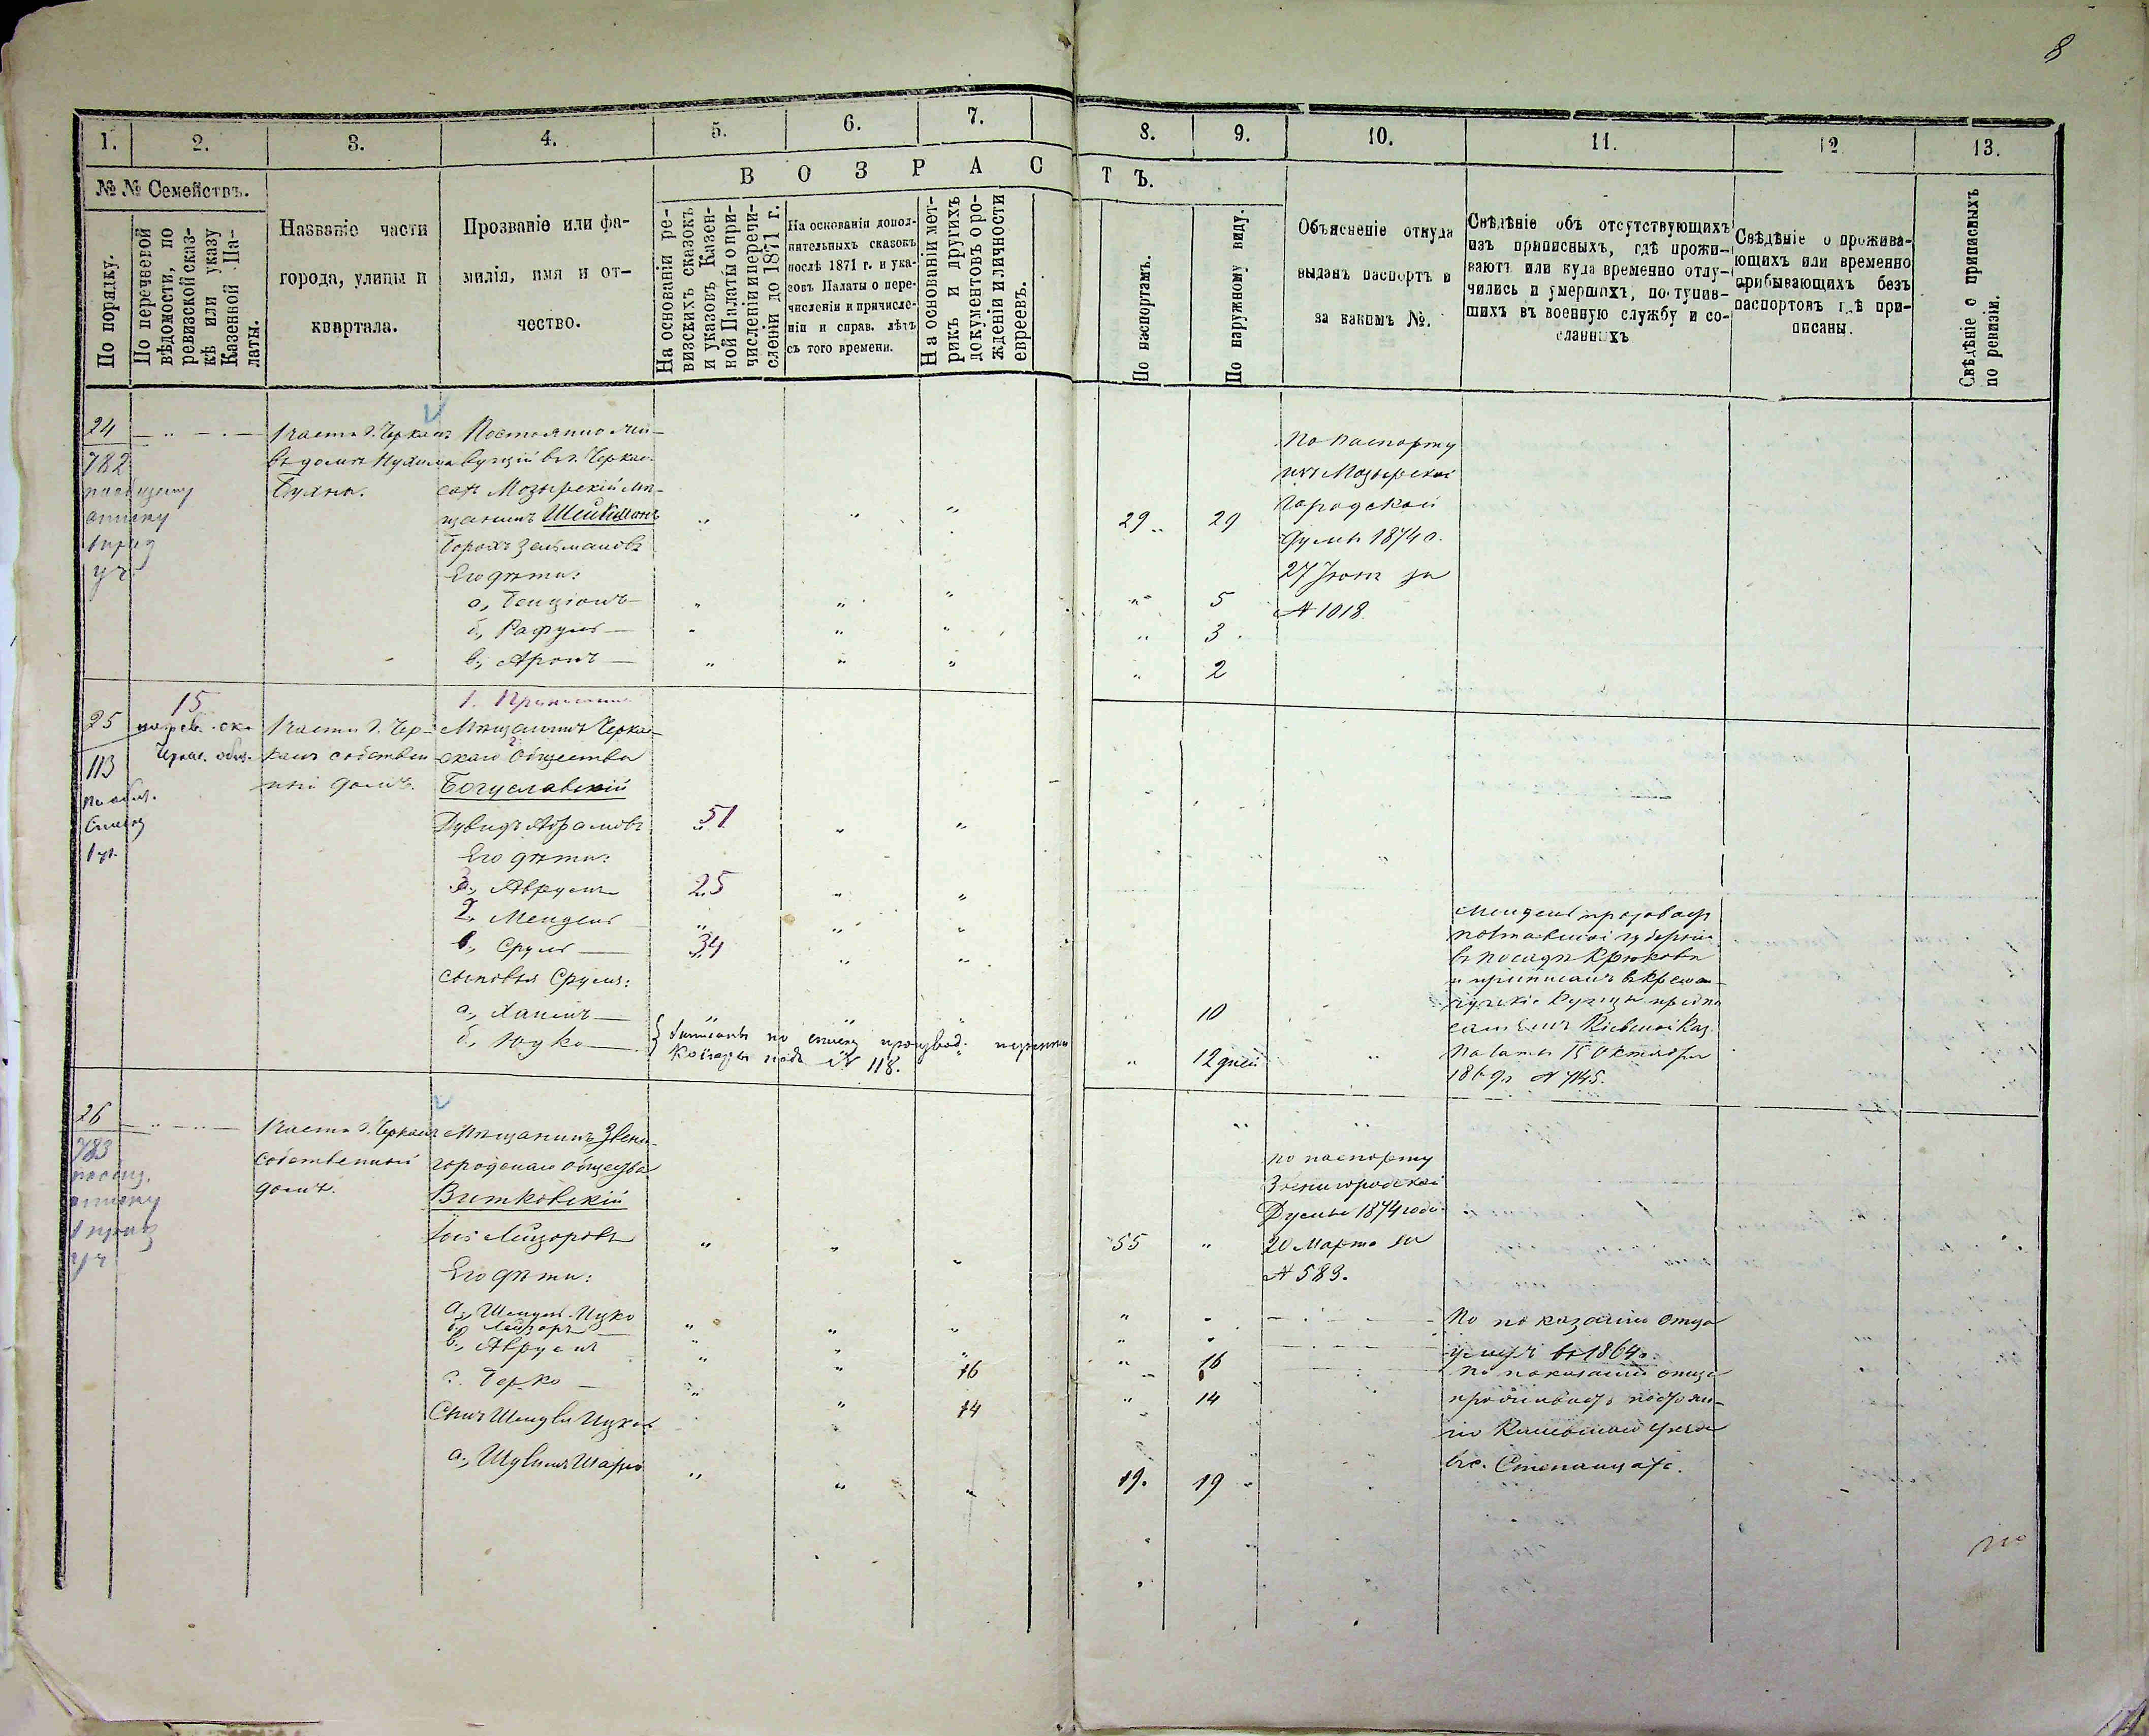 8
1. 2. 3. 4. 5. 6. 7. 8. 9. 10. 11. 12 13.
№ № Семействъ.
В О З Р А С Т Ъ.
По порядку.
По перечневой
вѣдомости, по
ревизской сказ-
кѣ или указу
Казенной Па-
латы.
Названіе части
города, улицы и
квартала.
Прозваніе или фа-
милія, имя и от-
чество.
На основаніи ре-
визскихъ сказокъ
и указовъ Казен-
ной Палаты о при-
численіи и перечи-
сленіи до 1871 г.
На основаніи допол-
нительныхъ сказокъ
послѣ 1871 г. и ука-
зовъ Палаты о пере-
численіи и причисле-
ніи и справ. лѣтъ
съ того времени.
На основаніи мет-
рикъ и другихъ
документовъ о ро-
жденіи и личности
евреевъ.
По паспортамъ.
По наружному виду.
Объясненіе откуда
выданъ паспортъ и
за какимъ №.
Свѣдѣніе объ отсутствующихъ
изъ приписныхъ, гдѣ прожи-
ваютъ или куда временно отлу-
чились и умершихъ, поступив-
шихъ въ военную службу и со-
сланныхъ
Свѣдѣніе о прожива-
ющихъ или временно
прибывающихъ безъ
паспортовъ гдѣ при-
писаны.
Свѣдѣніе о приписныхъ
по ревизіи.
24
782
1 части г. Черкасъ
въ домѣ Нухима
Бухны.
Постоянно жи-
вущій въ г. Черкас-
сахъ Мозырскій мѣ-
щанинъ Шейкманъ
Борохъ Зельмановъ 29 29
Его дѣти:
а, Бенціонъ 5
б, Рафуль 3
в, Аронъ 2
По паспорту
изъ Мозырской
Городской
Думы 1874 г.
27 Іюня за
№ 1018
25
113
по общ.
списку
1 уч.
15
по рев. ск.
Черкас. общ.
1 части г. Чер-
касъ собствен-
ный домъ.
Мѣщанинъ Черкас-
скаго Общества
Богуславскій
Дувидъ Абрамовъ 51
Его дѣти:
Аврумъ 25
2, Мендель
в, Сруль 34
сыновья Сруля:
а, Хаимъ 10
б, Юдко 12 дней
по списку
под № 118.
Мендель
Полтавской губерніи
въ посадѣ Крюковѣ
и приписанъ въ Кремен-
чугскіе Купцы предпи-
саніемъ Кіевской Каз.
Палаты 15 Октября
1869 г. № 7145.
26
783
по общ.
списку
уч
1 части г. Черкасъ
собственный
домъ.
Мѣщанинъ Звени-
городскаго общества
Витковскій
Лейзоровъ 55
Его дѣти:
а, Шендель-Ицко
б, Лейзоръ
в, Аврумъ 16 16
г. Берко 14 14
Сынъ Шенделя Ицка
а, 19. 19
по паспорту
Звенигородской
Думы 1874 года
20 Марта за
№ 583.
По показанію отца
умеръ въ 1864 г.
По показанію отца
проживаетъ постоян-
но Каневскаго уѣзда
въ с. Степанцахъ.